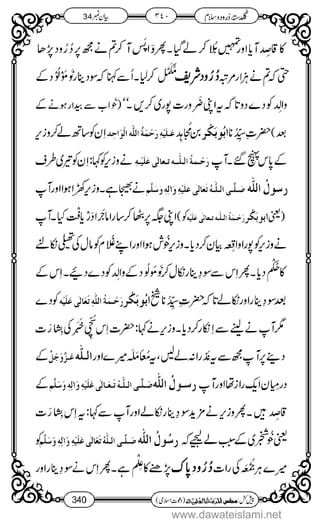 بیان نمبر 34
۳٤۰
گلدستۂ دُرود و سلام
کا قاصد آیا اور تمہیں بُلا کر لے گیا۔ پھر وہ آپ نے تم کر مجھ پر دُرود پڑھا
حتی کہ تم نے ہزار مرتبہ دُرود شریف مکمل کر لیا۔ اس سے کہنا سو دینار نومولود کے
والد کو دے دو تاکہ وہ اپنی ضرورت پوری کریں۔“ (خواب سے بیدار ہونے کے
بعد) حضرتِ سیِّدُنا ابُوبَکْر بن مُجاہِد عَلَیْہِ رَحْمَۃُ اللّٰہِ الْوَاحِد ان کو ساتھ لے کر وزیر
کے پاس پہنچ گئے۔ آپ رَحْمَۃُ اللّٰہِ تَعَالٰی عَلَیْہِ نے وزیر کو کہا: ان کو تیری طرف
رسولُ اللّٰہ صَلَّی اللّٰہُ تَعَالٰی عَلَیْہِ وَاٰلِہٖ وَسَلَّم نے بھیجا ہے۔ وزیر کھڑا ہوا اور آپ
(یعنی ابُوبَکْر رَحْمَۃُ اللّٰہِ تَعَالٰی عَلَیْہ) کو اپنی جگہ پر بٹھا کر سارا ماجرا دریافت کیا۔ آپ
نے وزیر کو پورا واقعہ بیان کر دیا۔ وزیر خوش ہوا اور اپنے غلام کو مال کی تھیلی نکالنے
کا حُکم دیا۔ پھر اس سے سو دینار نکال کر نومولود کے والد کو دے دیئے۔ اس کے
بعد سو دینار اور نکالے تاکہ حضرت سیِّدُنا شیخ ابُوبَکْر رَحْمَۃُ اللّٰہِ تَعَالٰی عَلَیْہِ کو دے
مگر آپ نے لینے سے انکار کر دیا۔ وزیر نے کہا: حضرت اِس سچّی خبر کی بشارت
دینے پر آپ مجھ سے یہ نذرانہ لے لیں، یہ مُعاملہ میرے اور اللّٰہ عَزَّوَجَلَّ کے
درمیان ایک راز تھا اور آپ رسولُ اللّٰہ صَلَّی اللّٰہُ تَعَالٰی عَلَیْہِ وَاٰلِہٖ وَسَلَّم کے
قاصد ہیں۔ پھر وزیر نے مزید سو دینار نکالے اور آپ سے کہا: یہ اس بشارت
یعنی خوشخبری کے سبب لے لیجئے کہ رسُولُ اللّٰہ صَلَّی اللّٰہُ تَعَالٰی عَلَیْہِ وَاٰلِہٖ وَسَلَّم کو
میرے ہر جُمُعہ کی رات دُرُودِ پاک پڑھنے کا علم ہے۔ پھر اس نے سو دینار اور
340
پیش کش: مجلس المدینۃ العلمیۃ (دعوتِ اسلامی)
www.dawateislami.net